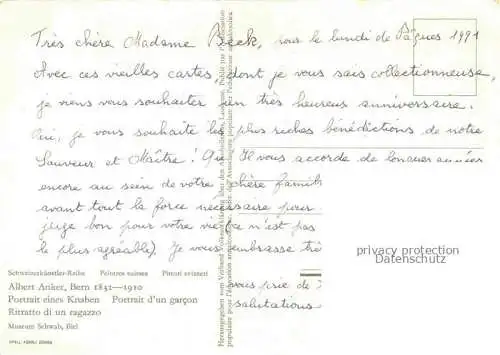 Très chère Madame Beck, ce lundi de Pâques 1991
Avec ces vieilles cartes dont je vous sais collectionneuse,
je viens vous souhaiter un très heureux anniversaire.
Oui, je vous souhaite les plus riches bénédictions de notre
Sauveur et Maître ! Qu'Il vous accorde de longues années
encore au sein de votre chère famille
avant tout la force nécessaire pour
juge bon pour votre vie (ce n'est pas
le plus agréable). Je vous embrasse trè
vous prie de
salutations
privacy protection
Datenschutz
Schweizerkünstler-Reihe Peintres suisses Pittori svizzeri
Albert Anker, Bern 1831—1910
Portrait eines Knaben Portrait d'un garçon
Ritratto di un ragazzo
Museum Schwab, Biel
Herausgegeben vom Verband Volksdienst